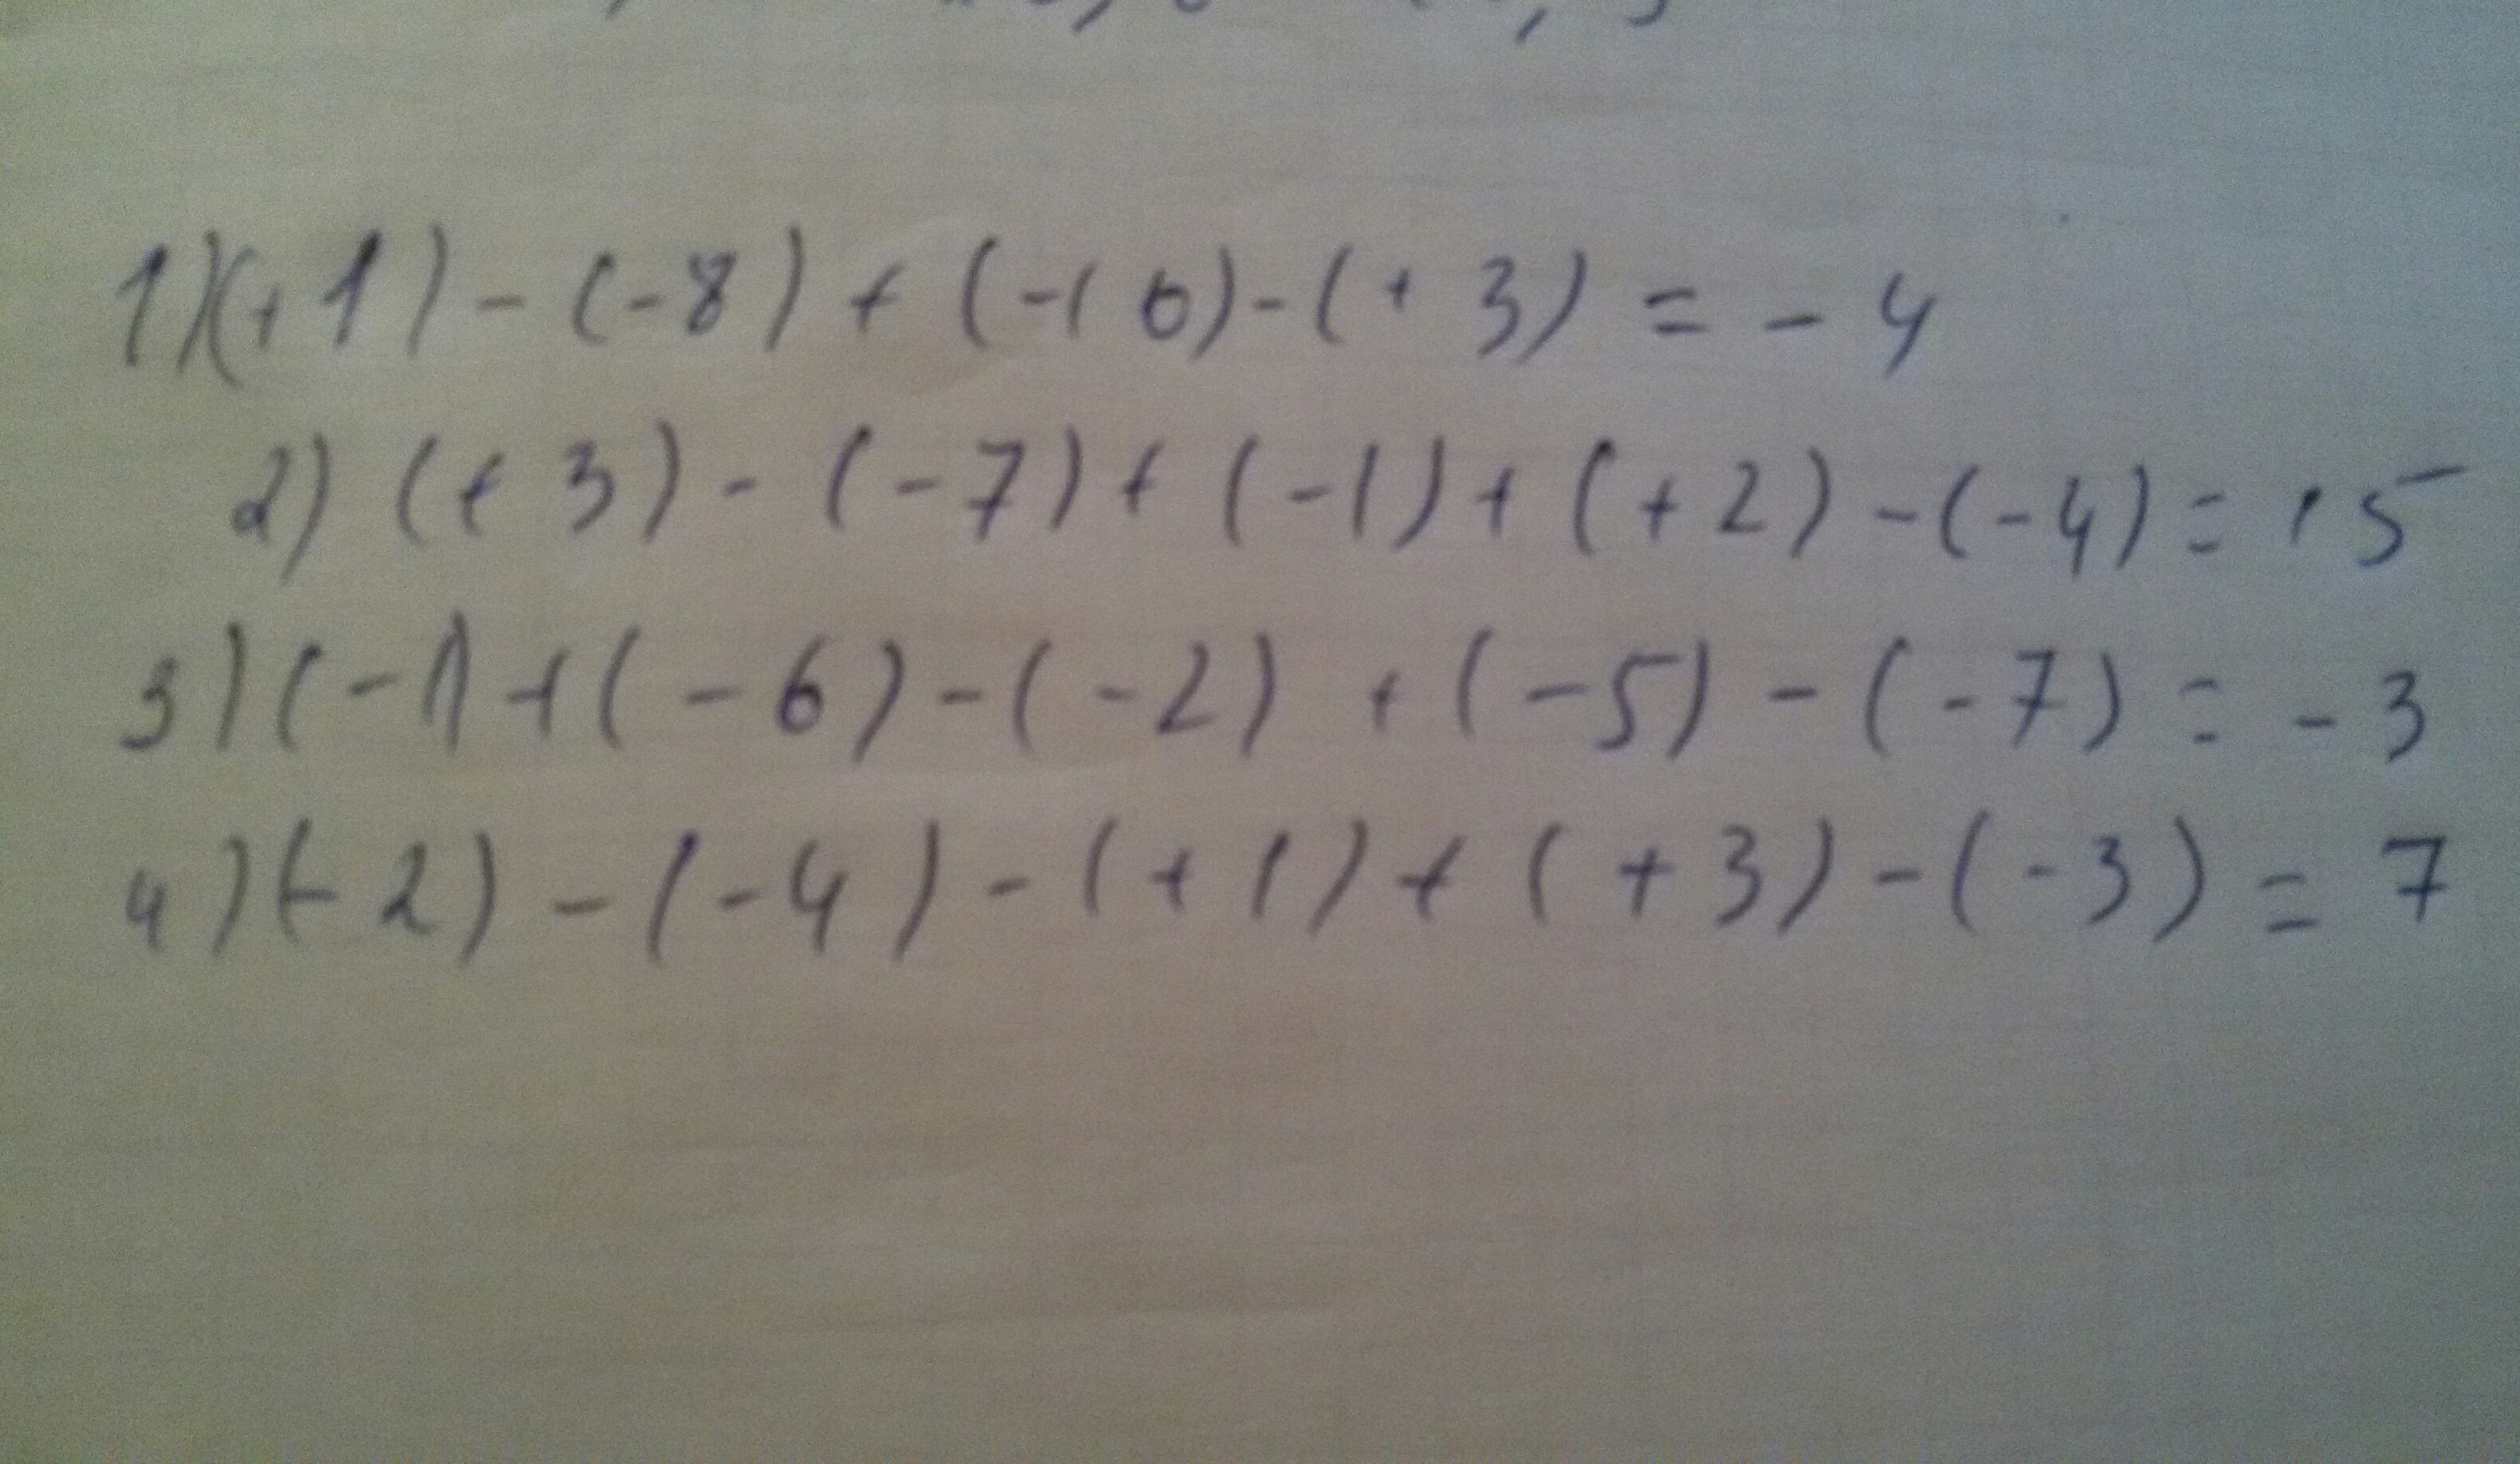 1) (+1) - (-8) + (-10) - (+3) = -4
2) (+3) - (-7) + (-1) + (+2) - (-4) = 15
3) (-1) + (-6) - (-2) + (-5) - (-7) = -3
4) (-2) - (-4) - (+1) + (+3) - (-3) = 7